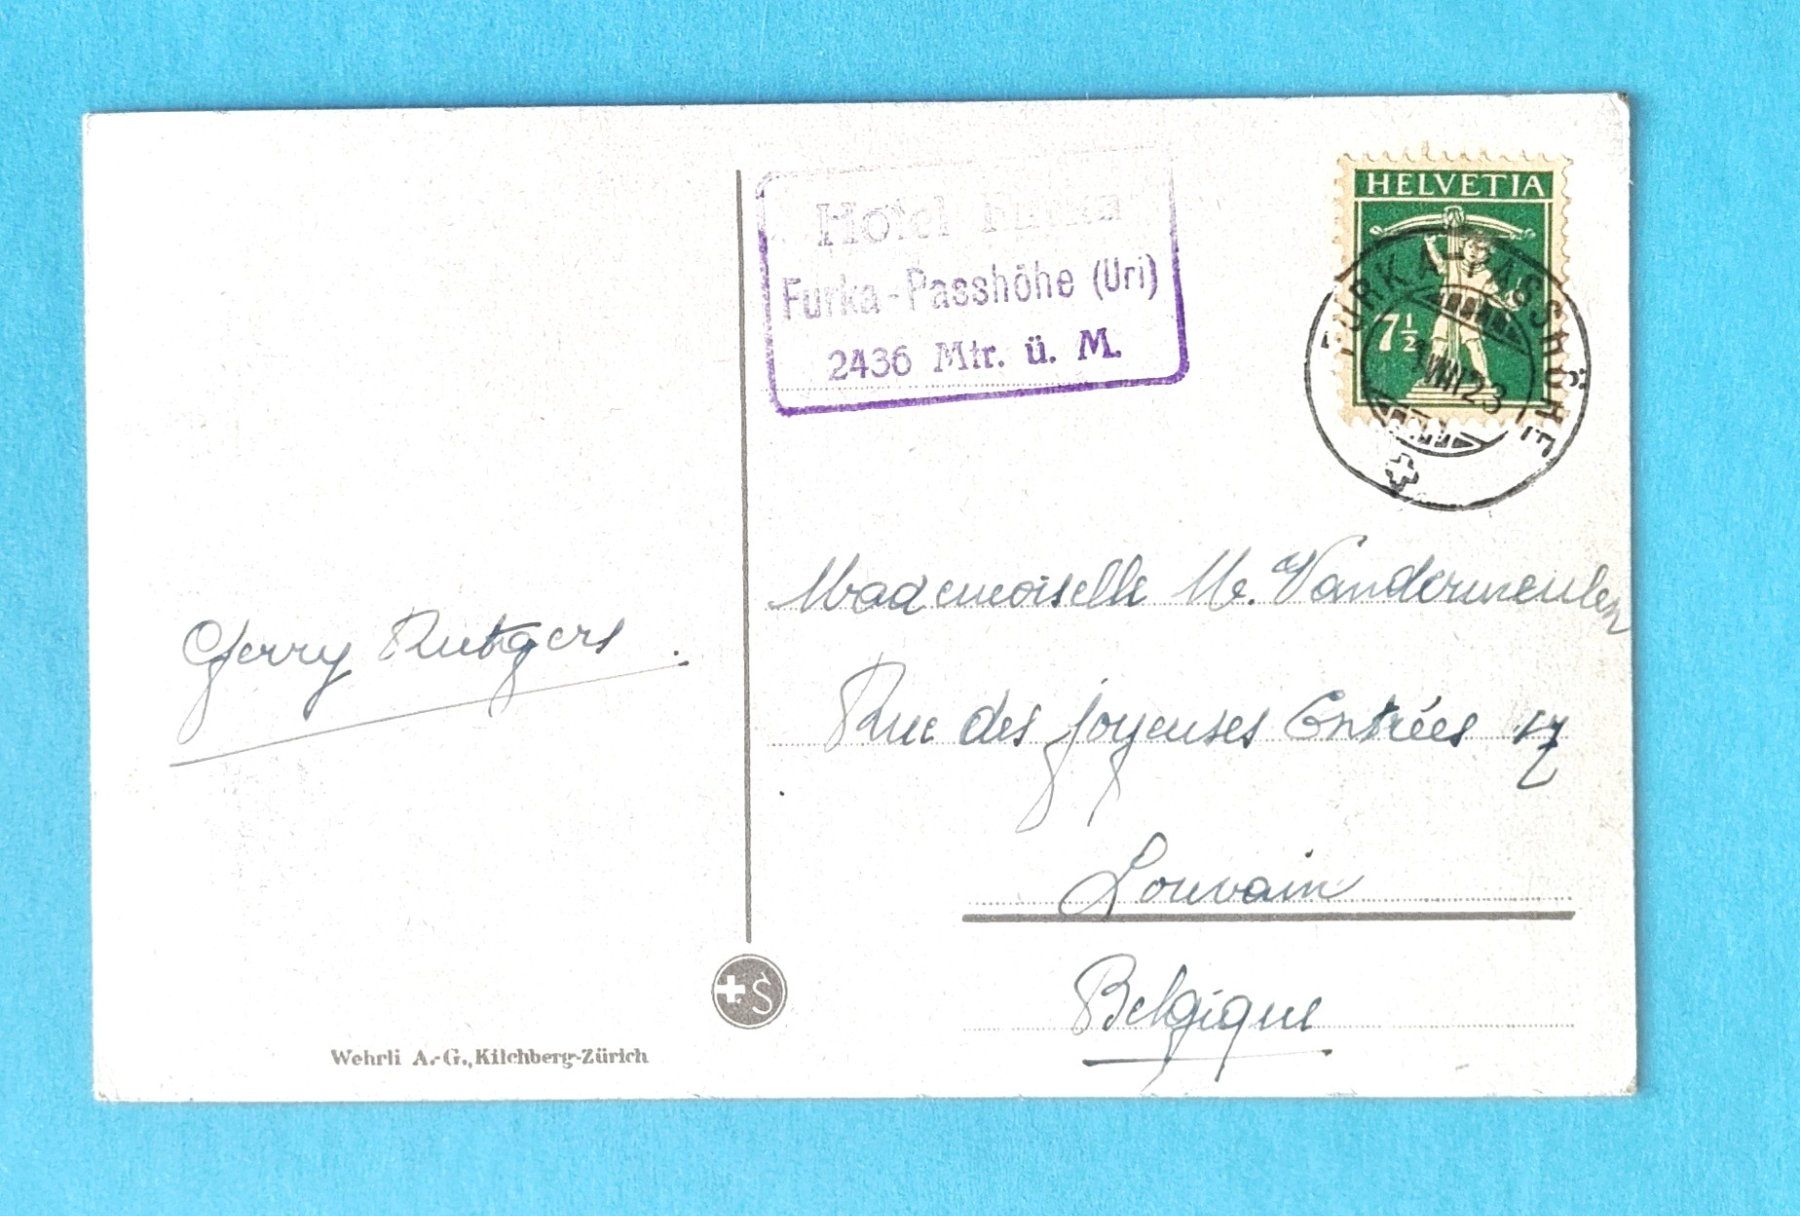 Hotel Furka
Furka-Passhöhe (Uri)
2436 Mtr. ü. M.
HELVETIA
7½
FURKA-PASSHÖHE
VIII 23
Gerry Rutgers.
Mademoiselle M. Vandermeulen
Rue des joyeuses Entrées 17
Louvain
Belgique
+S
Wehrli A.-G., Kilchberg-Zürich